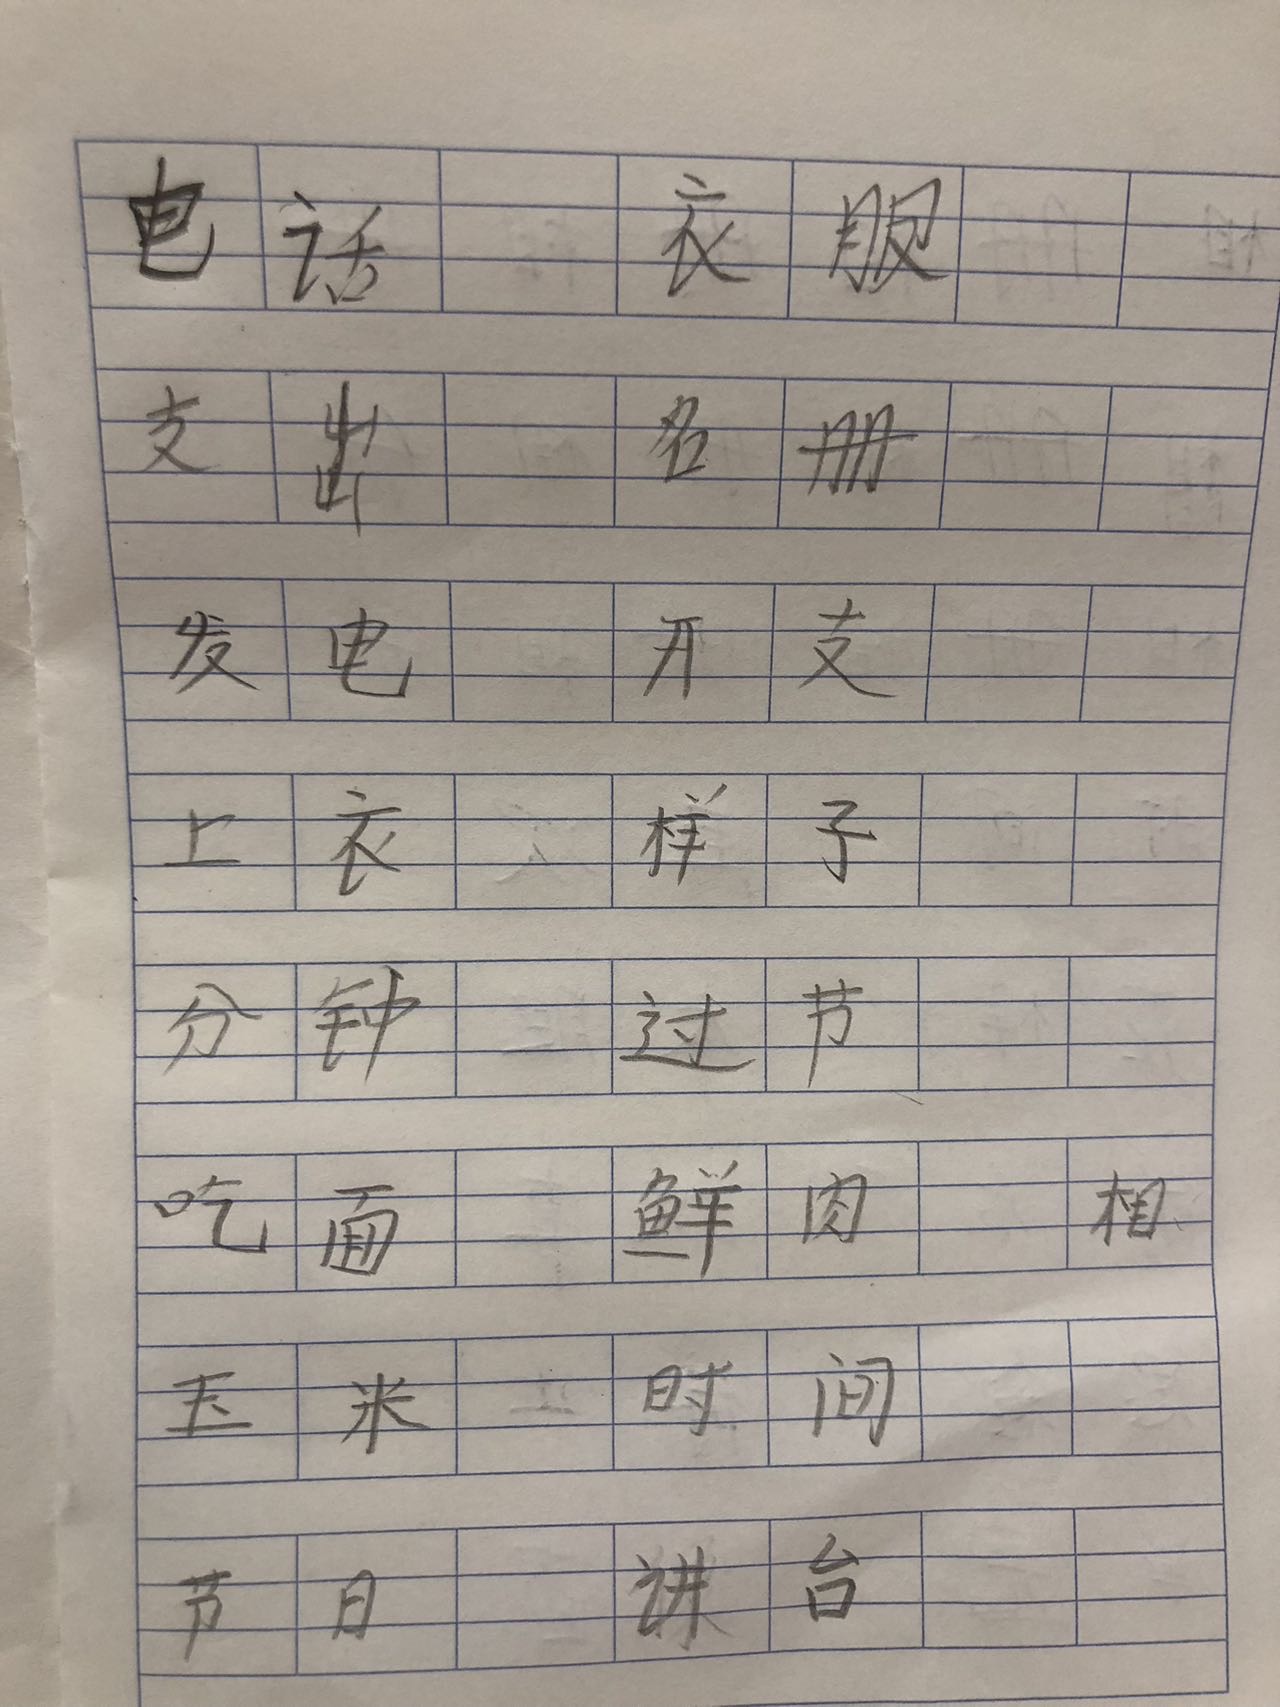 电话 衣服
支出 名册
发电 开支
上衣 样子
分钟 过节
吃面 鲜肉 相
玉米 时间
节日 讲台